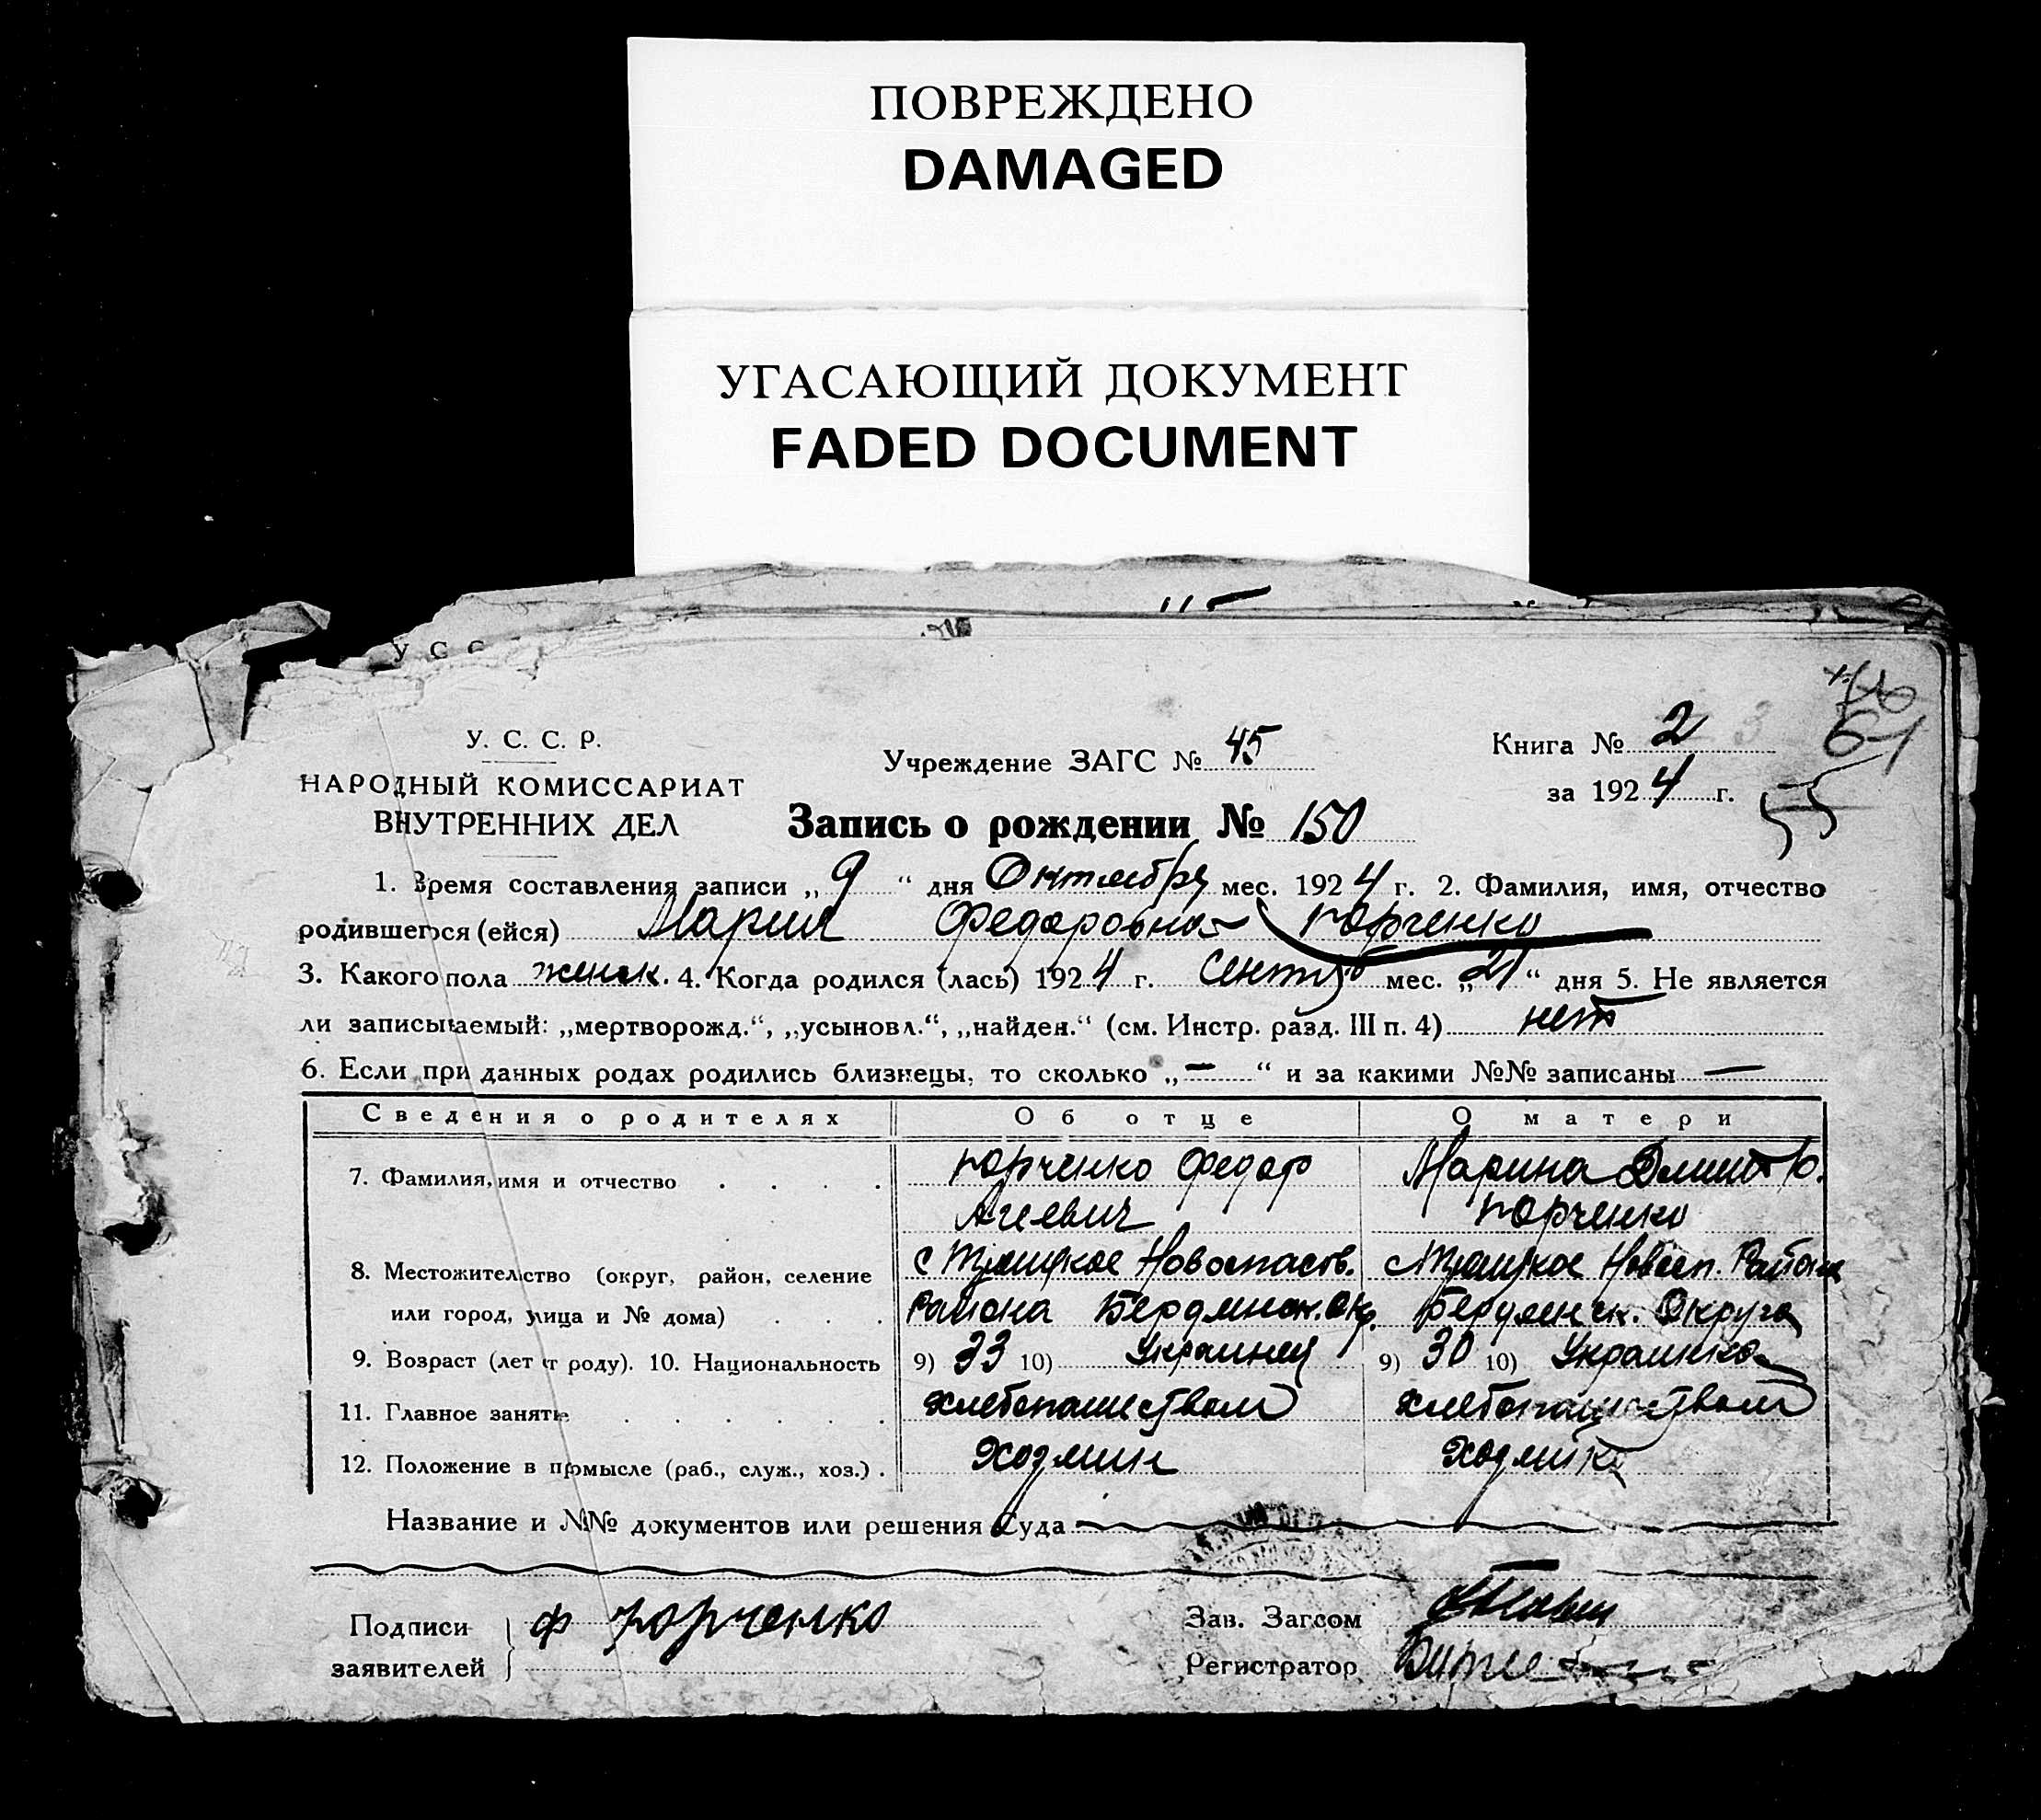 ПОВРЕЖДЕНО
DAMAGED
УГАСАЮЩИЙ ДОКУМЕНТ
FADED DOCUMENT
У С С
У. С. С. Р.
НАРОДНЫЙ КОМИССАРИАТ
ВНУТРЕННИХ ДЕЛ
Учреждение ЗАГС № 45
Книга № 2 3
за 1924 г.
61
55
Запись о рождении № 150
1. Время составления записи „ 9 “ дня Октября мес. 1924 г. 2. Фамилия, имя, отчество
родившегося (ейся) Мария Федоровна Юрченко
3. Какого пола женск. 4. Когда родился (лась) 1924 г. Сентяб мес. „ 21 “ дня 5. Не является
ли записываемый: „мертворожд.“, „усыновл.“, „найден.“ (см. Инстр. разд. III п. 4) нет
6. Если при данных родах родились близнецы, то сколько „ — “ и за какими №№ записаны —
Сведения о родителях Об отце О матери
7. Фамилия, имя и отчество . . . . Юрченко Федор Марина
Агеевич Юрченко
8. Местожительство (округ, район, селение с Троицкое Новоспасов. с Троицкое Новосп. Района
или город, улица и № дома) . . . Района Бердянск. Окр. Бердянск. Округа
9. Возраст (лет от роду). 10. Национальность 9) 33 10) Украинец 9) 30 10) Украинка
11. Главное занятие . . . . . . хлебопашеством хлебопашеством
12. Положение в промысле (раб., служ., хоз.) . Хозяин Хозяйка
Название и №№ документов или решения Суда
Подписи заявителей Ф Юрченко
Зав. Загсом
Регистратор